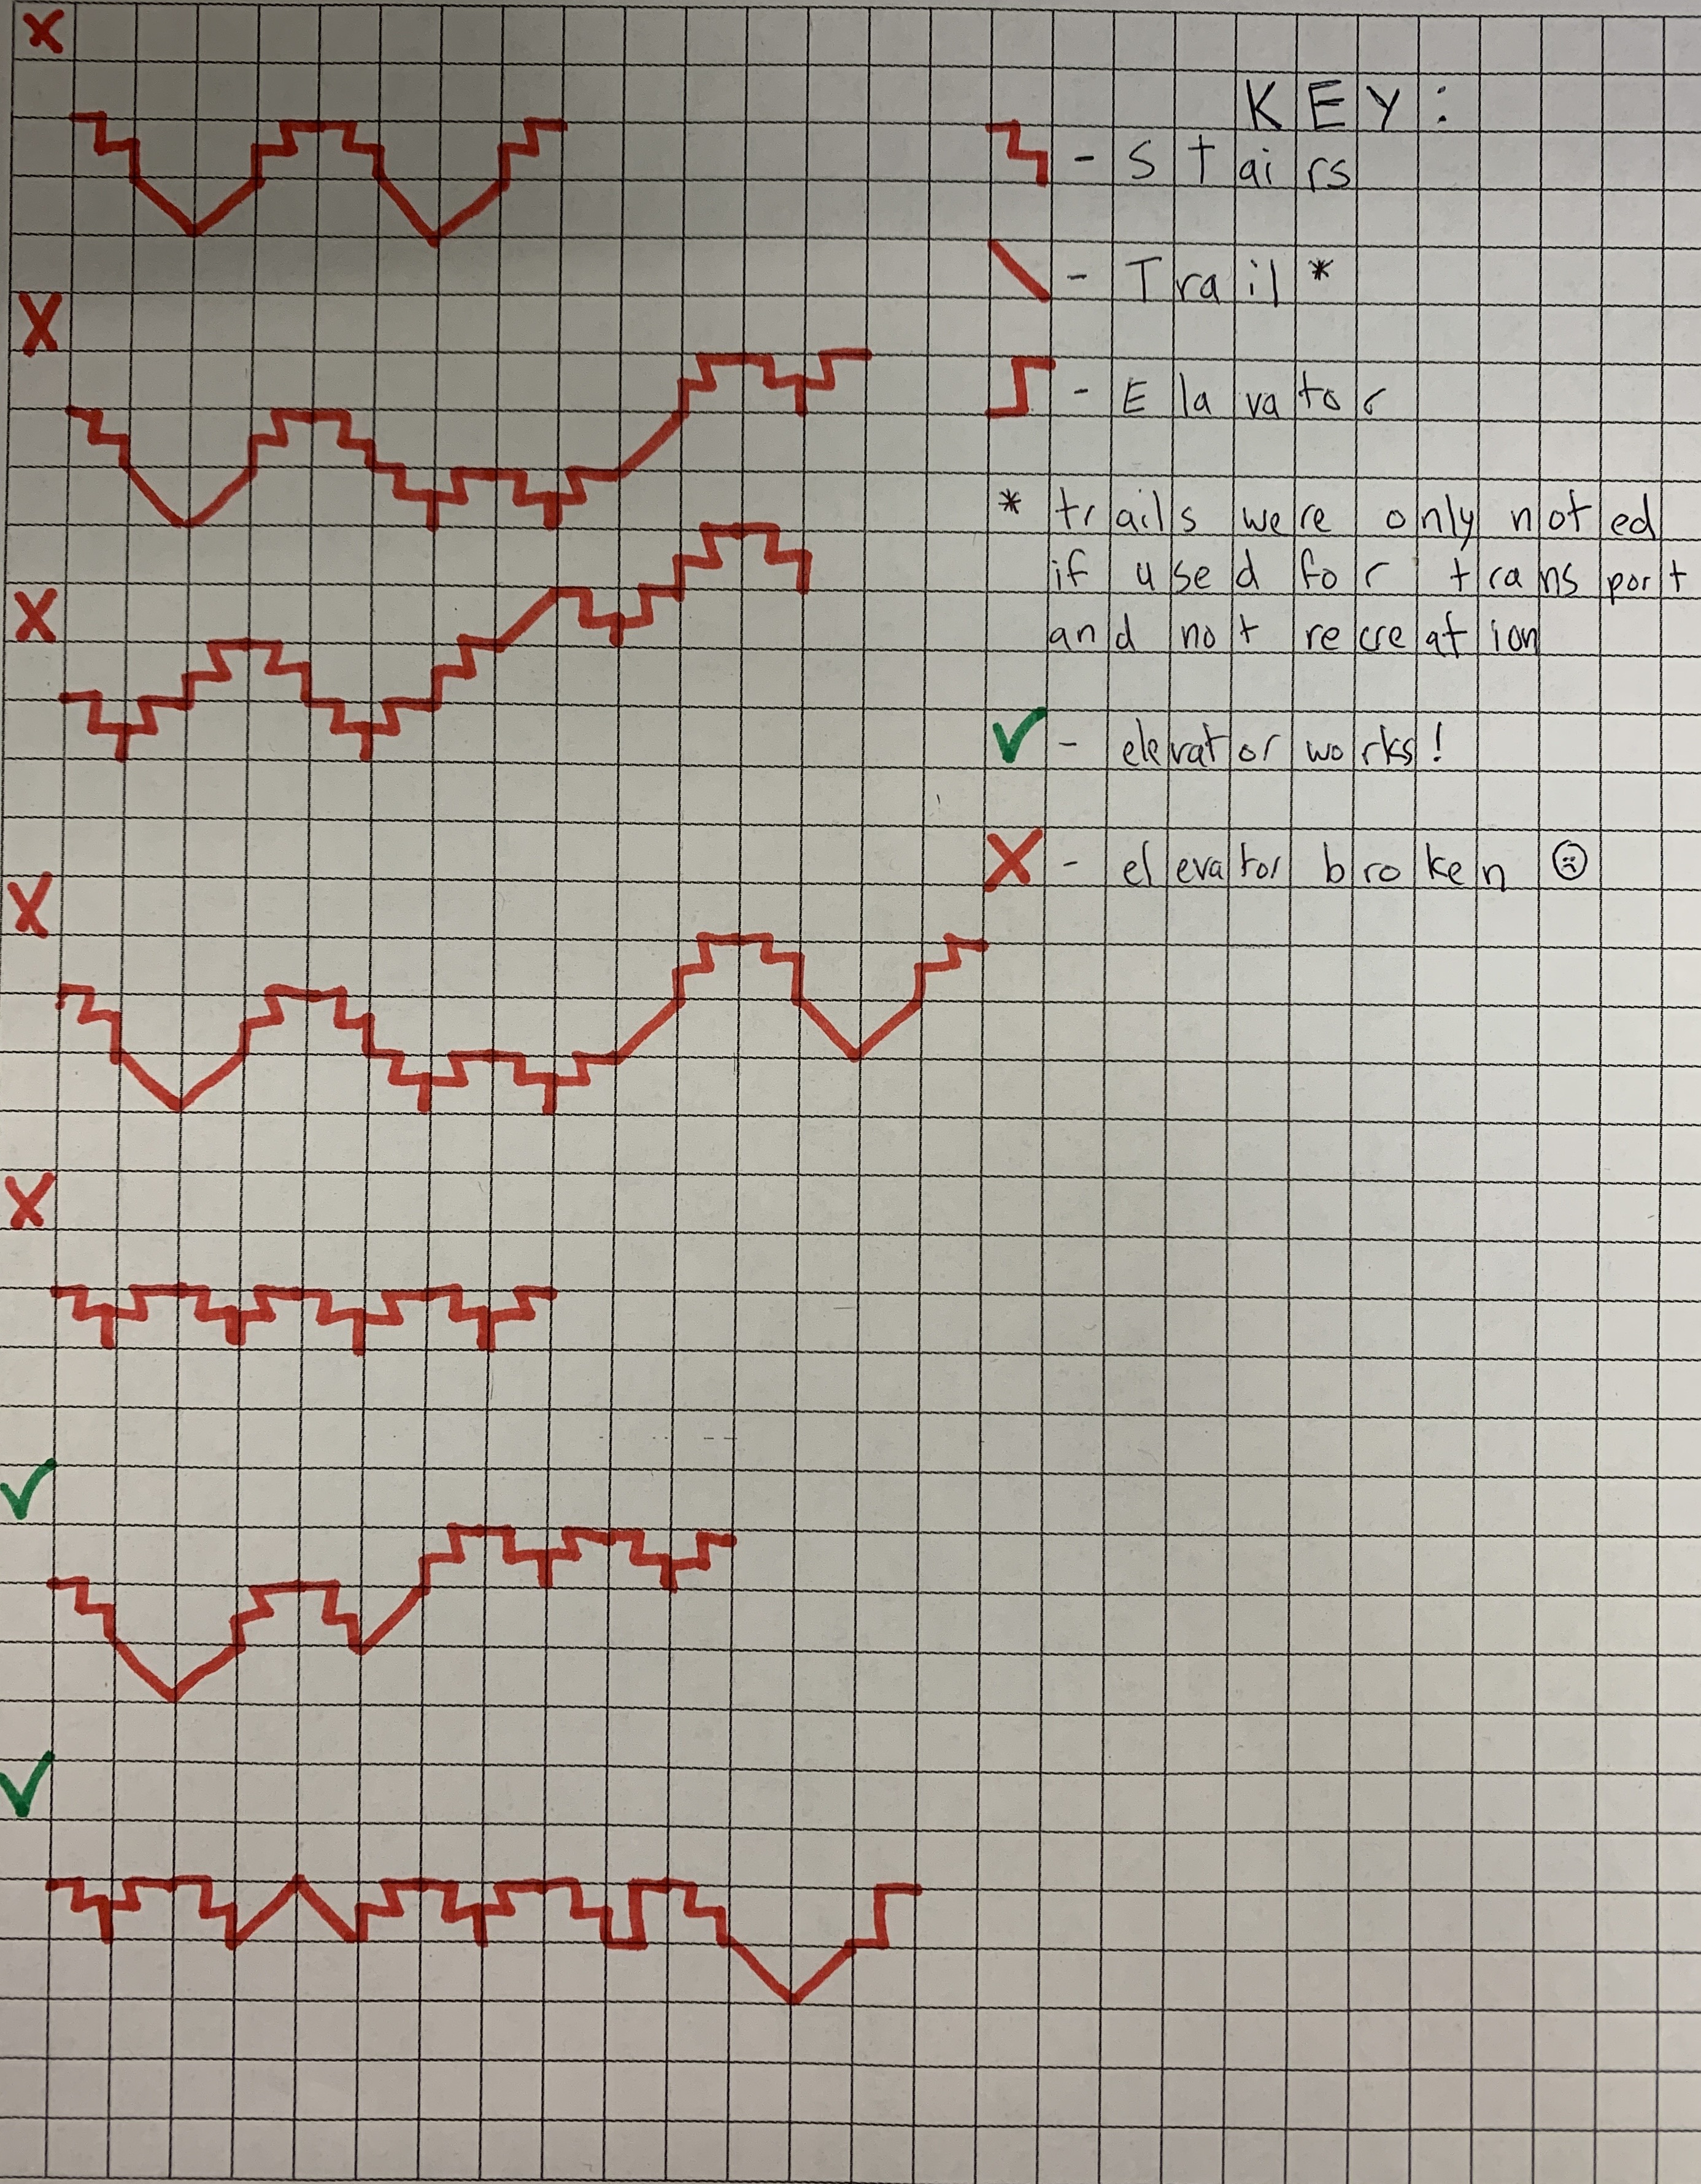 KEY:
- Stairs
- Trail *
- Elavator
* trails were only noted
if used for transport
and not recreation
- elevator works!
- elevator broken ☹